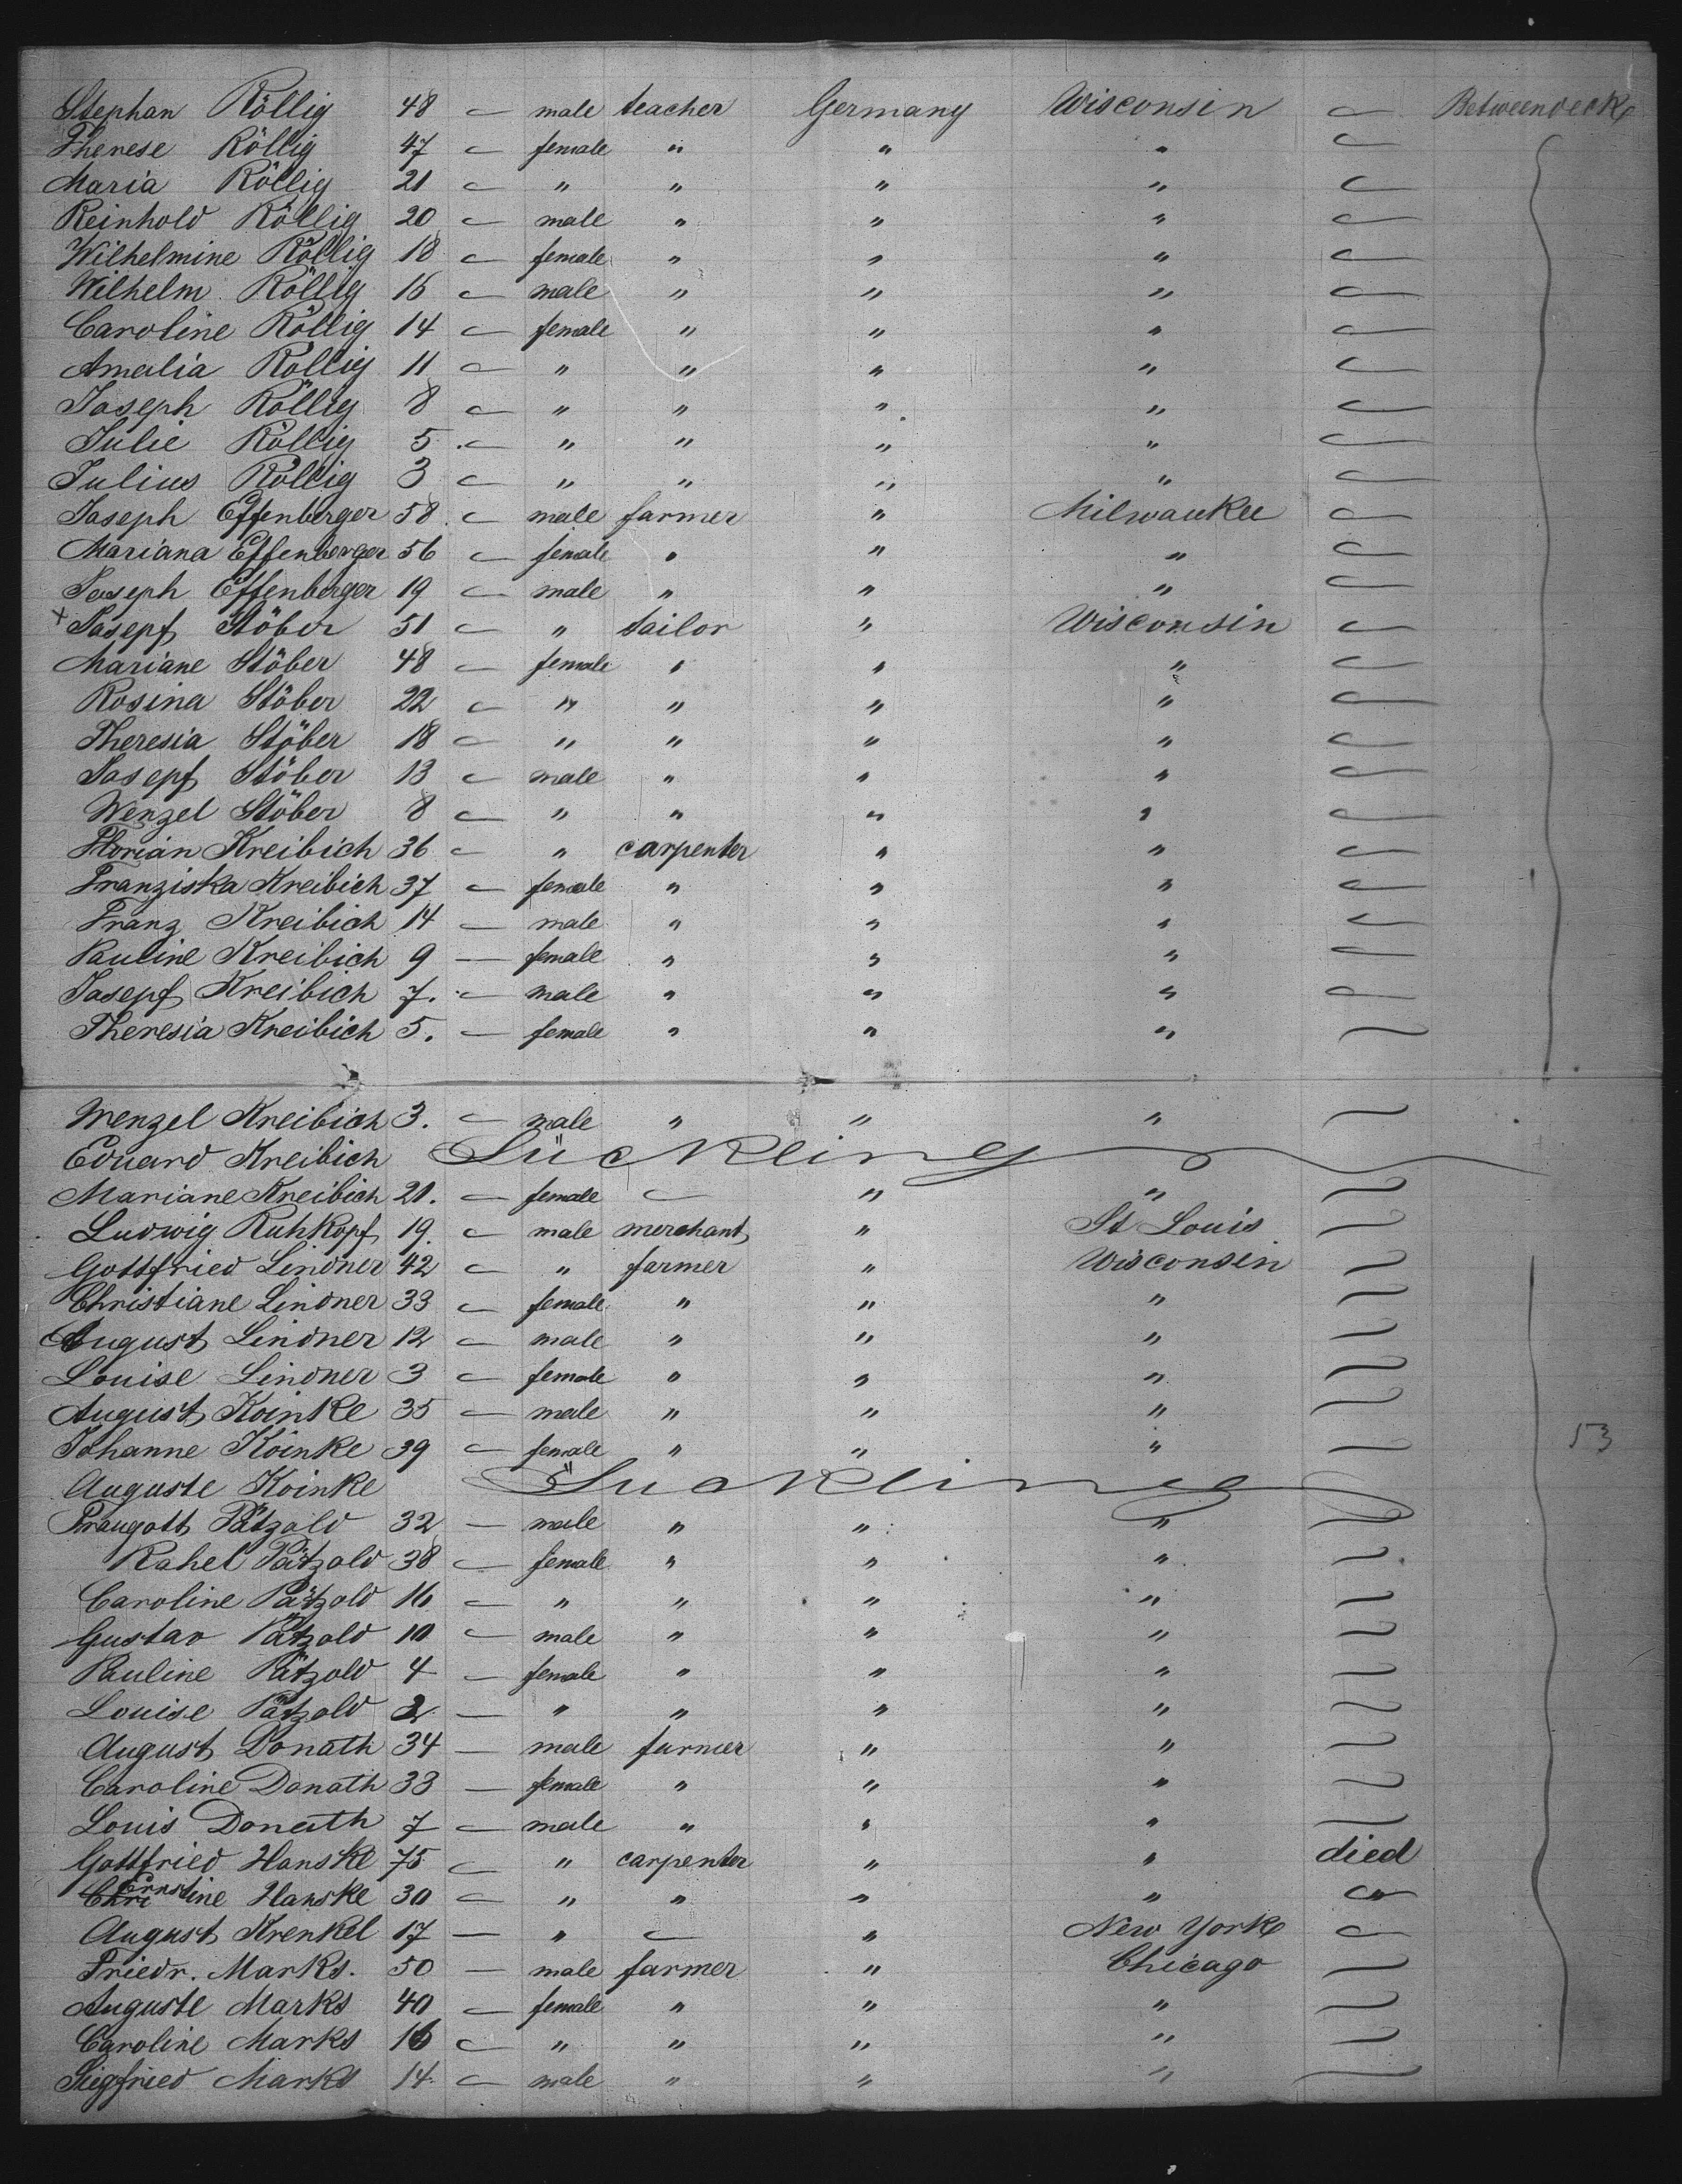 Stephan Röllig 48 — male teacher Germany Wisconsin — Betweendeck
Therese Röllig 47 — female " " " —
Maria Röllig 21 — " " " " —
Reinhold Röllig 20 — male " " " —
Wilhelmine Röllig 18 — female " " " —
Wilhelm Röllig 16 — male " " " —
Caroline Röllig 14 — female " " " —
Amalia Röllig 11 — " " " " —
Joseph Röllig 8 — " " " " —
Julie Röllig 5 — " " " " —
Julius Röllig 3 — " " " " —
Joseph Effenberger 58 — male farmer " Milwaukee —
Mariana Effenberger 56 — female " " " —
Joseph Effenberger 19 — male " " " —
x Josepf Stöber 51 — " tailor " Wisconsin —
Mariane Stöber 48 — female " " " —
Rosina Stöber 22 — " " " " —
Theresia Stöber 18 — " " " " —
Josepf Stöber 13 — male " " " —
Wenzel Stöber 8 — " " " " —
Florian Kreibich 36 — " carpenter " " —
Franziska Kreibich 37 — female " " " —
Franz Kreibich 14 — male " " " —
Pauline Kreibich 9 — female " " " —
Josepf Kreibich 7. — male " " " —
Theresia Kreibich 5. — female " " " —
Wenzel Kreibich 3. — male " " " —
Eduard Kreibich Sückling
Mariane Kreibich 21. — female — " " —
Ludwig Ruhkopf 19. — male merchant " St Louis —
Gottfried Lindner 42 — " farmer " Wisconsin —
Christiane Lindner 33 — female " " " —
August Lindner 12 — male " " " —
Louise Lindner 3 — female " " " —
August Koinke 35 — male " " " —
Johanne Koinke 39 — female " " " — 53
Auguste Koinke Sückling
Traugott Pätzold 32 — male " " " —
Rahel Pätzold 38 — female " " " —
Caroline Pätzold 16 — " " " " —
Gustav Pätzold 10 — male " " " —
Pauline Pätzold 4 — female " " " —
Louise Pätzold 2 — " " " " —
August Donath 34 — male farmer " " —
Caroline Donath 33 — female " " " —
Louis Donath 7 — male " " " —
Gottfried Hanske 75 — " carpenter " " died
Ernstine Hanske 30 — " " " " —
August Krenkel 17 — " — " New York —
Friedr. Marks. 50 — male farmer " Chicago —
Auguste Marks 40 — female " " " —
Caroline Marks 16 — " " " " —
Siegfried Marks 14 — male " " " —